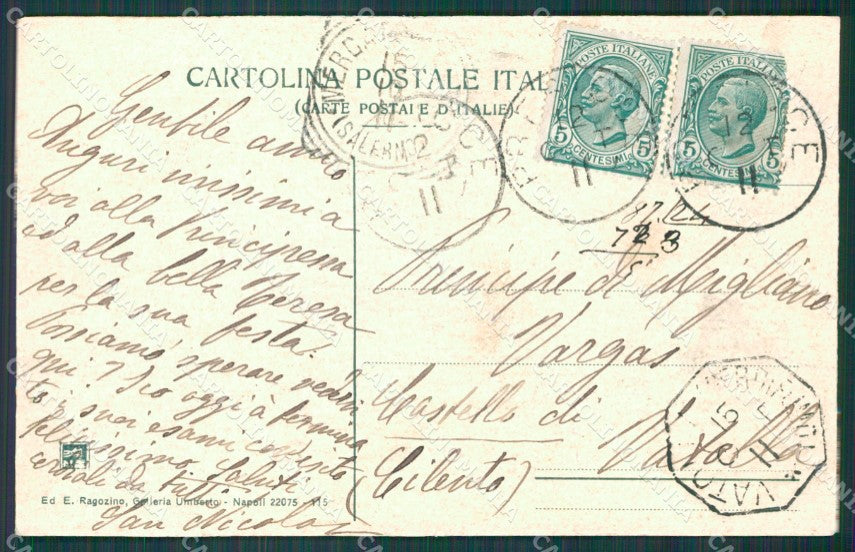 CARTOLINA POSTALE ITAL
(CARTE POSTALE D'ITALIE)
POSTE ITALIANE
5 CENTESIMI 5
POSTE ITALIANE
5 CENTESIMI 5
MERCA
(SALERNO)
12
11
11
12
11
Gentile amico
Auguri vivissimi a
voi alla Principessa
ed alla bella Teresa
per la sua festa.
Possiamo sperare vedervi
qui?
oggi à termina
to i suoi esami con esito
felicissimo. Saluti
cordiali da tutti
San Nicola
723
5
Principe di Migliano
Vargas
Castello di
Vatolla
(Cilento)
VATOL
5
11
Ed E. Ragozino, Galleria Umberto - Napoli 22075 - 115
CARTOLINOMANIA